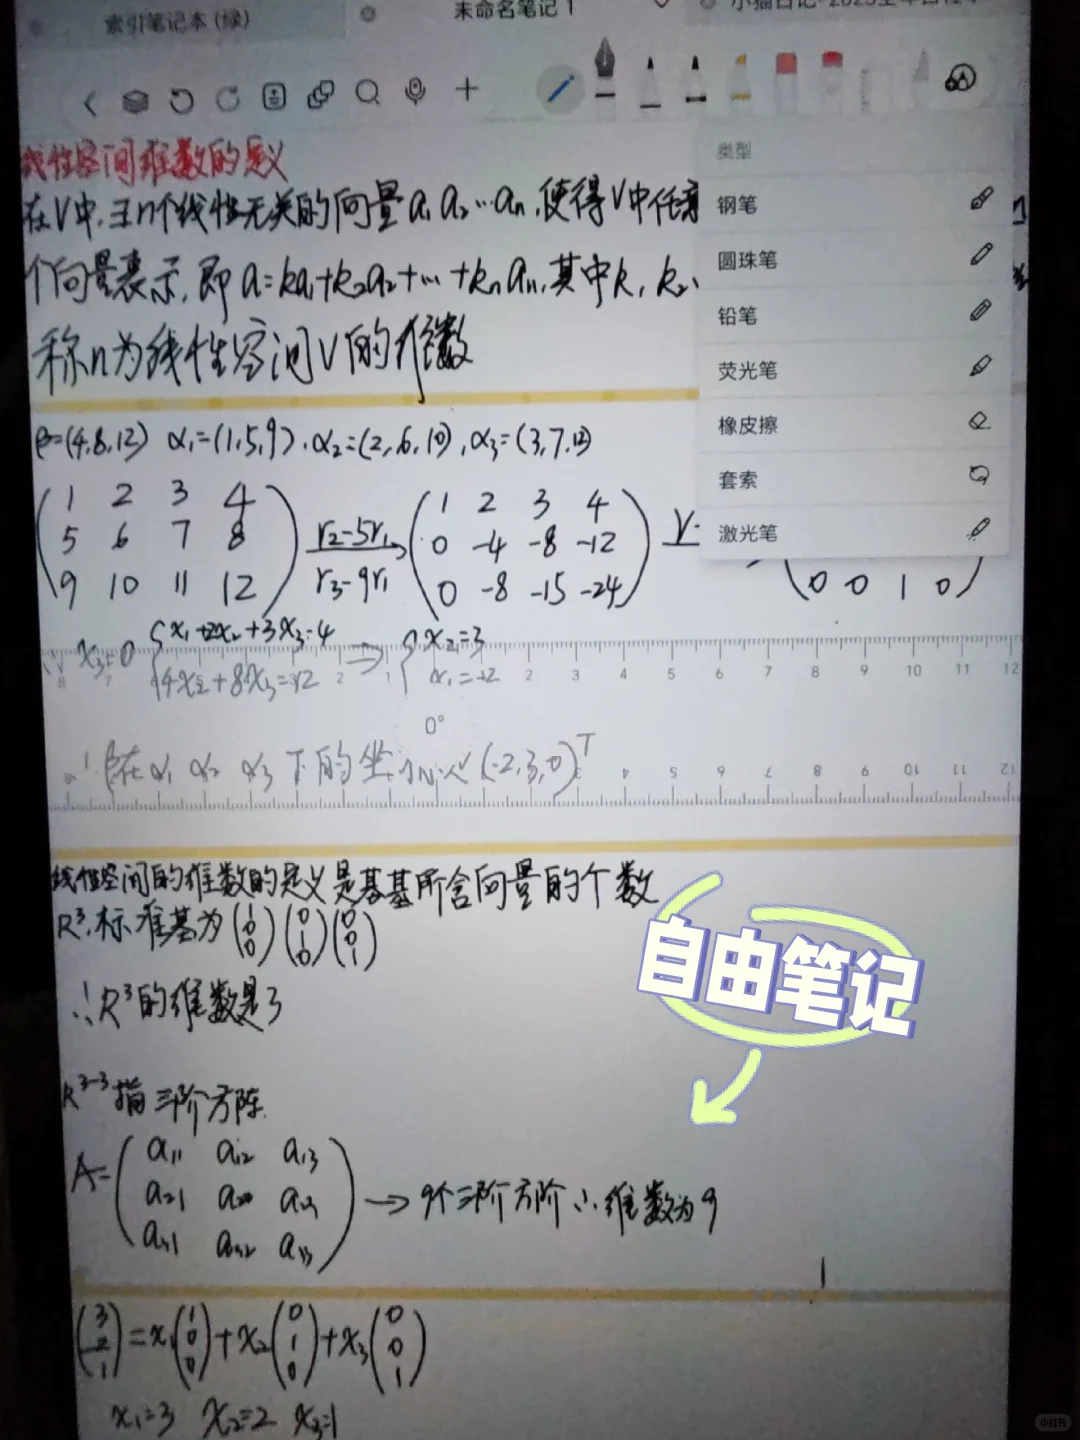 索引笔记本 (绿)
未命名笔记 1
类型
钢笔
圆珠笔
铅笔
荧光笔
橡皮擦
套索
激光笔
线性空间维数的定义
在V中,有n个线性无关的向量a₁ a₂…aₙ,使得V中任意
个向量表示,即 a=ka₁+k₂a₂+…+kₙaₙ,其中k₁ k₂、
称n为线性空间V的维数
β=(4,8,12) α₁=(1,5,9),α₂=(2,6,10),α₃=(3,7,12)
1 2 3 4
5 6 7 8
9 10 11 12
r₂-5r₁
r₃-9r₁
1 2 3 4
0 -4 -8 -12
0 -8 -15 -24
0 0 1 0
∴ x₃=0 x₁+2x₂+3x₃=4
4x₂+8x₃=12
⇒ x₂=3
x₁=-2
0°
∴ β在α₁ α₂ α₃下的坐标为(-2,3,0)ᵀ
线性空间的维数的定义是基基所含向量的个数
R³,标准基为(1 0 0)(0 1 0)(0 0 1)
∴R³的维数是3
自由笔记
R³⁻³指三阶方阵.
A= a₁₁ a₁₂ a₁₃
a₂₁ a₂₂ a₂₃
a₃₁ a₃₂ a₃₃
→9个三阶方阶∴维数为9
(3 2 1)=x₁(1 0 0)+x₂(0 1 0)+x₃(0 0 1)
x₁=3 x₂=2 x₃=1
小红书